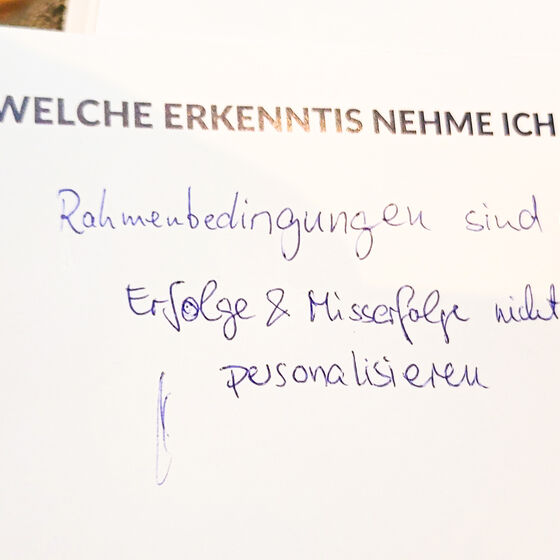 WELCHE ERKENNTIS NEHME ICH
Rahmenbedingungen sind
Erfolge & Misserfolge nicht
personalisieren